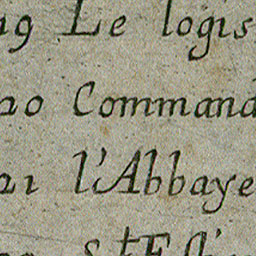 19 Le logis
20 Command
21 l'Abbaye